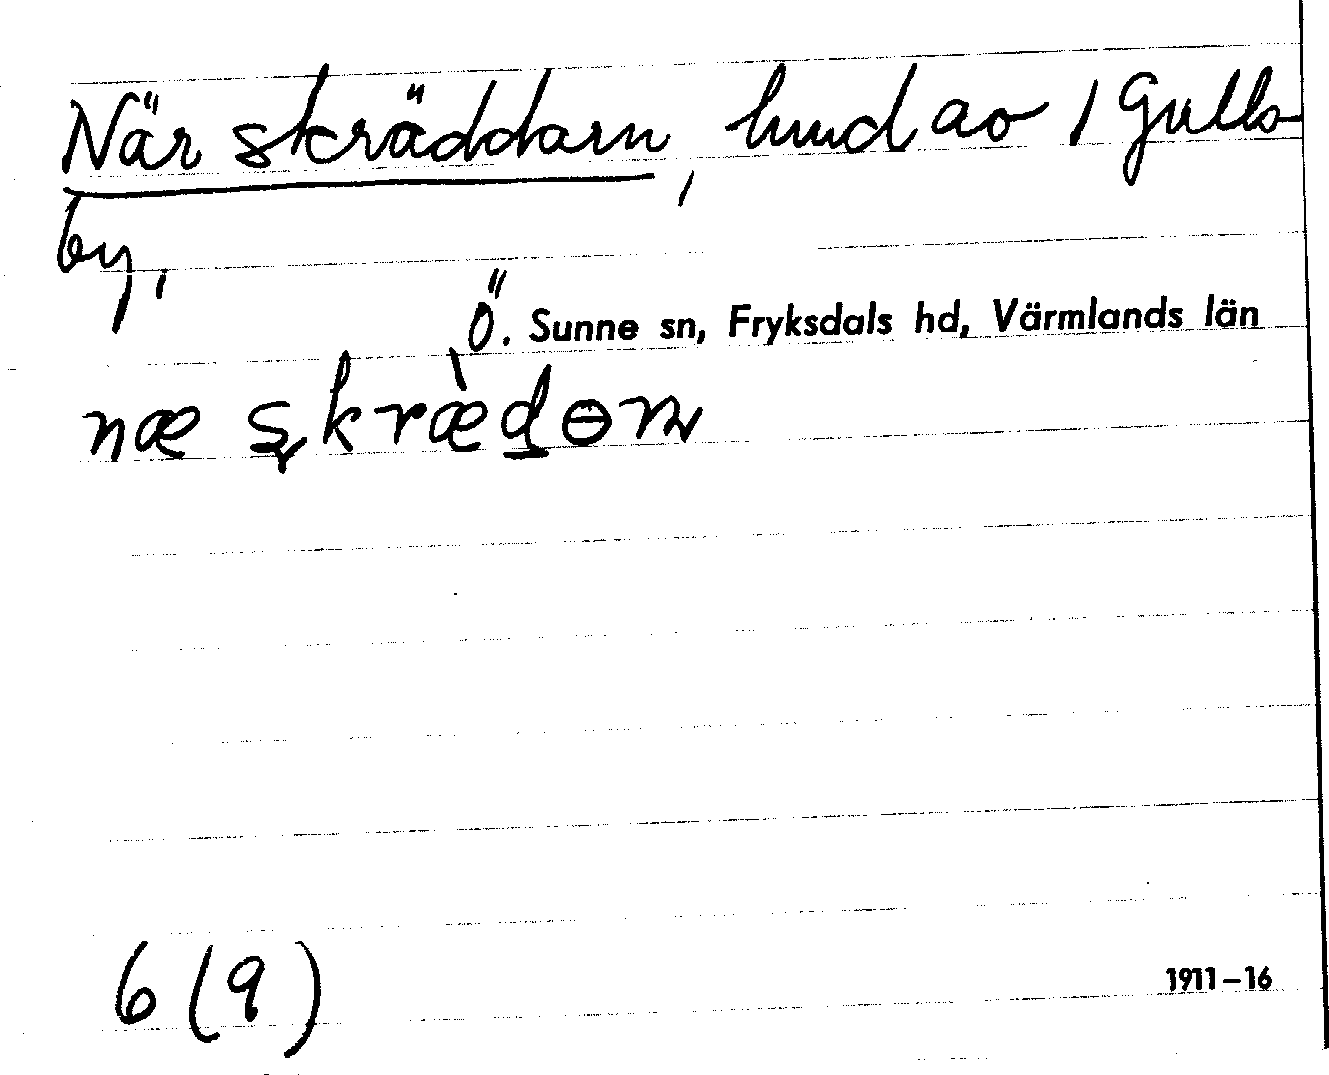 När skräddarn, hmd av 1 Gulls-
by,
Ö. Sunne sn, Fryksdals hd, Värmlands län
næ skræ̀dɵn
6 (9)
1911–16